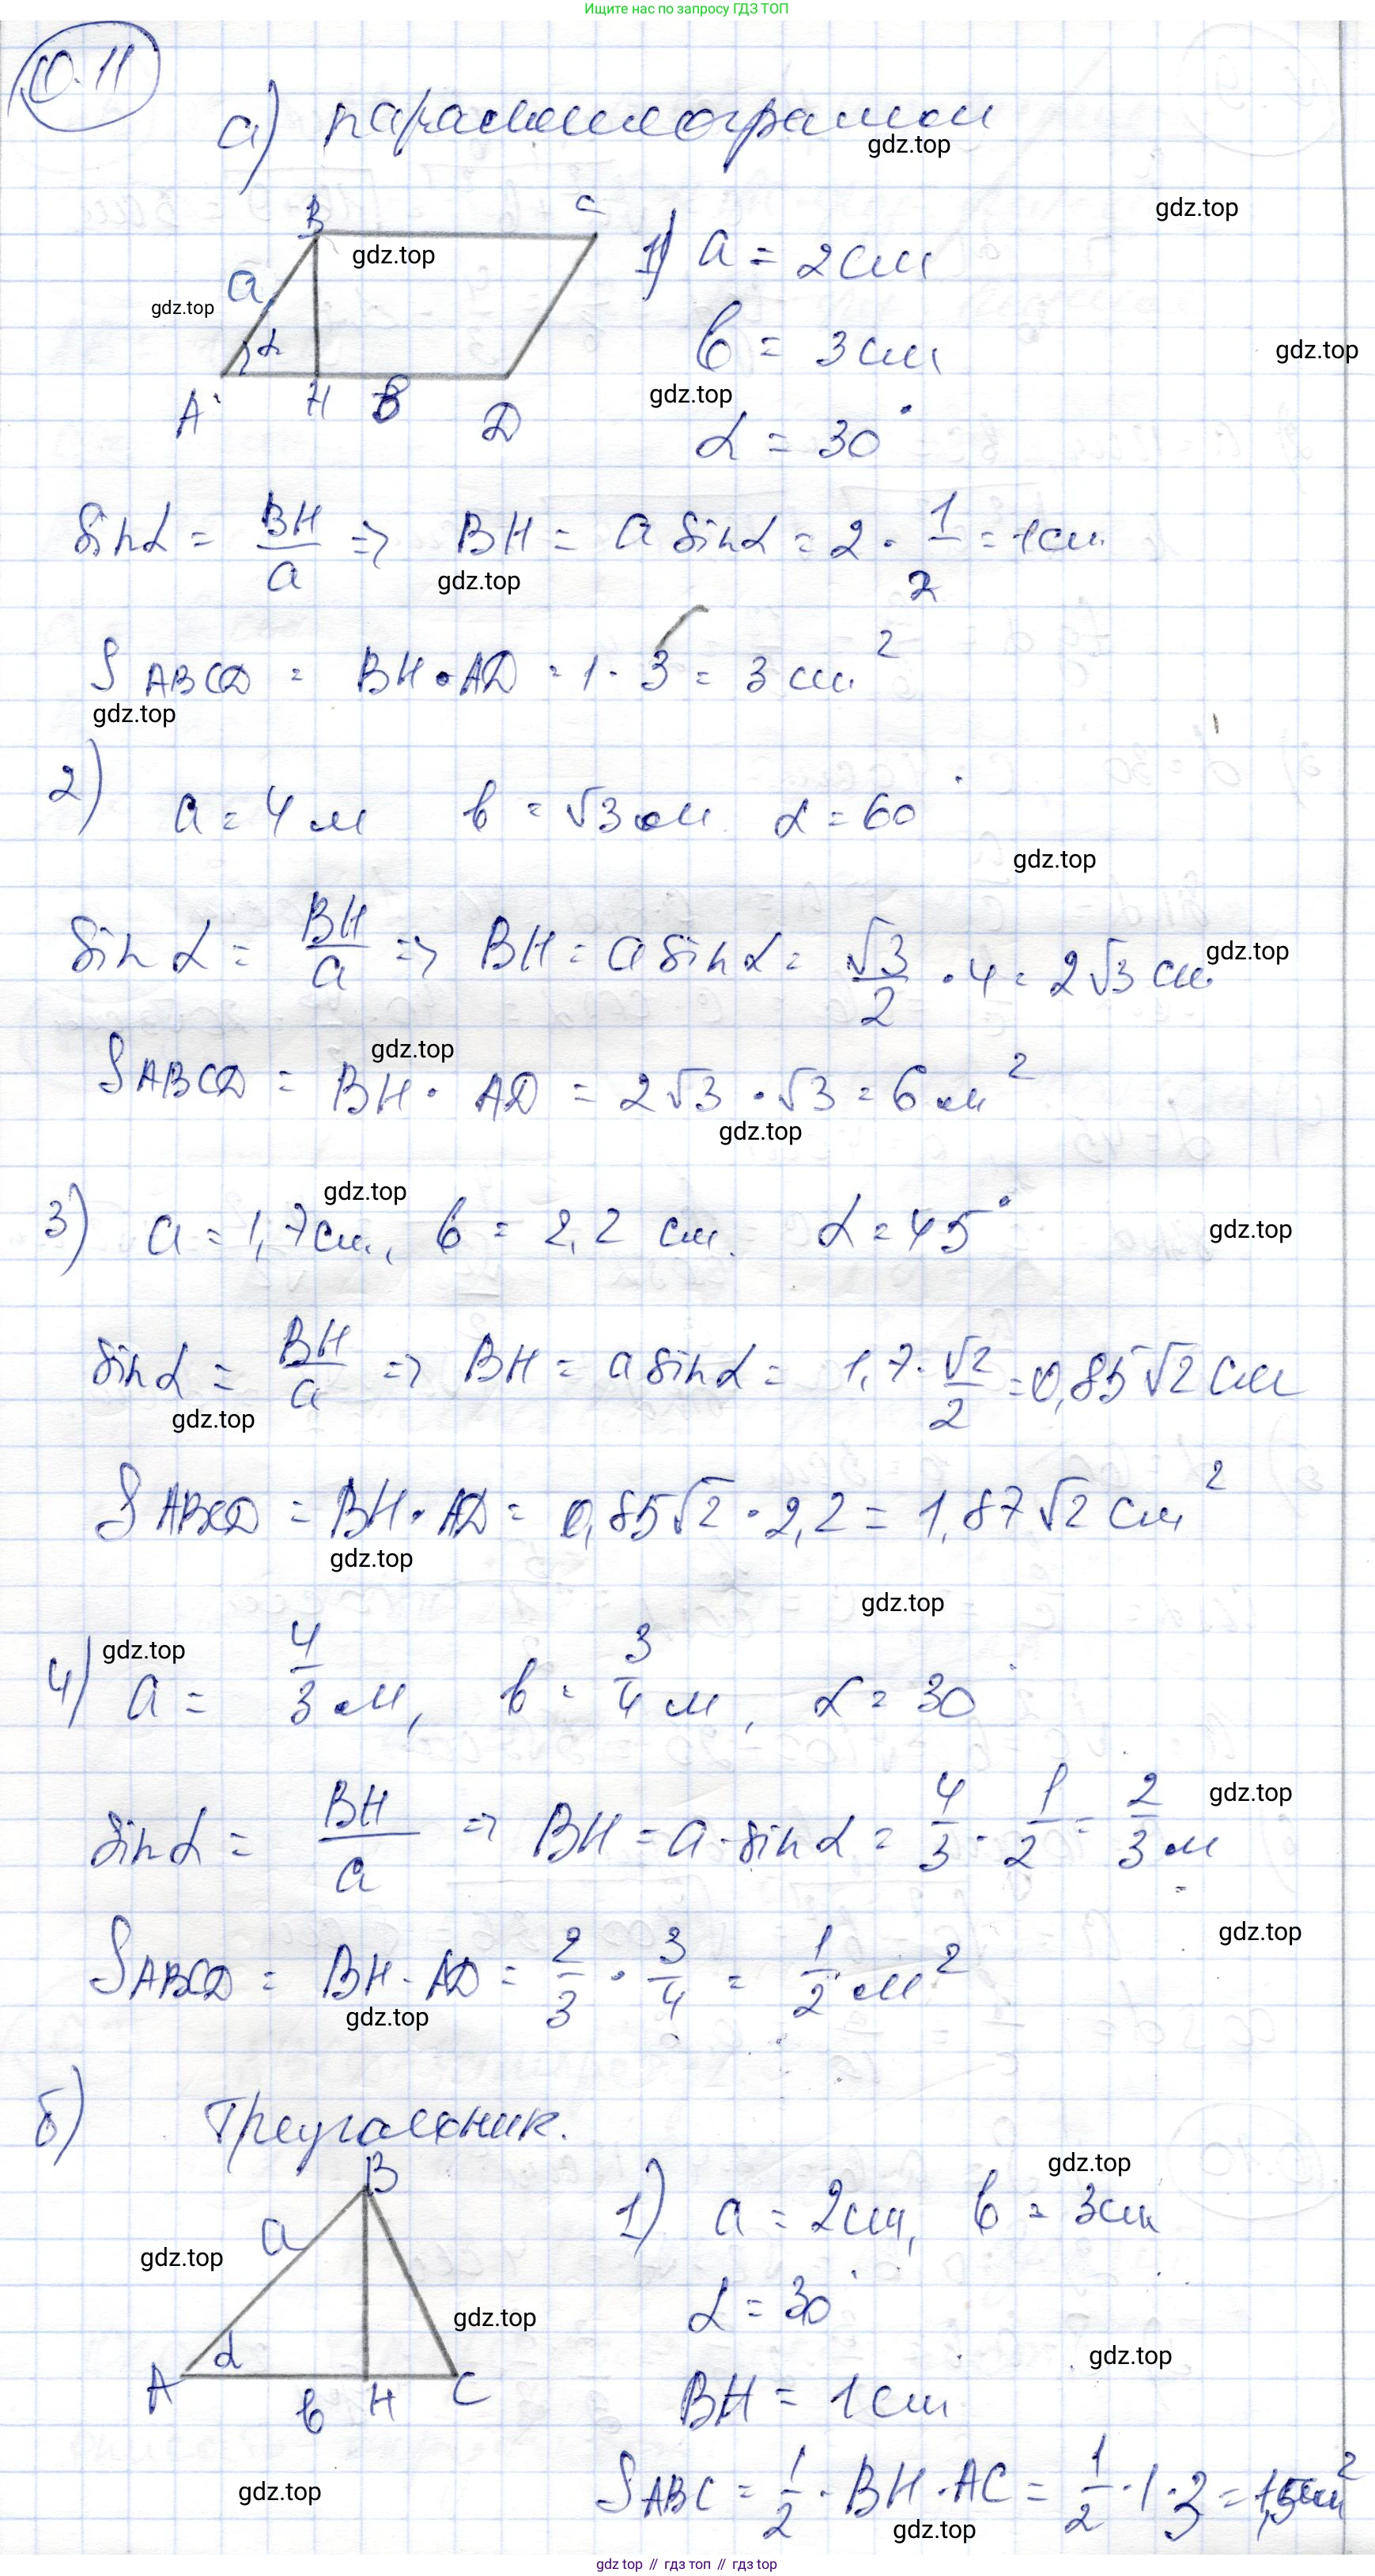 Ищите нас по запросу ГДЗ ТОП
10.11
а) параллелограмм
gdz.top
gdz.top
B C
gdz.top
1) a = 2 см
a
gdz.top
α
b = 3 см
gdz.top
A H b D
gdz.top
α = 30°
sin α = BH/a => BH = a sin α = 2 · 1/2 = 1 см.
gdz.top
S ABCD = BH · AD = 1 · 3 = 3 см²
gdz.top
2) a = 4 м b = √3 м α = 60°
gdz.top
sin α = BH/a => BH = a sin α = √3/2 · 4 = 2√3 см
gdz.top
gdz.top
S ABCD = BH · AD = 2√3 · √3 = 6 м²
gdz.top
gdz.top
3) a = 1,7 см, b = 2,2 см. α = 45°
gdz.top
sin α = BH/a => BH = a sin α = 1,7 · √2/2 = 0,85√2 см
gdz.top
S ABCD = BH · AD = 0,85√2 · 2,2 = 1,87√2 см²
gdz.top
gdz.top
gdz.top
4) a = 4/3 м, b = 3/4 м, α = 30°
gdz.top
sin α = BH/a => BH = a · sin α = 4/3 · 1/2 = 2/3 м
gdz.top
S ABCD = BH · AD = 2/3 · 3/4 = 1/2 м²
gdz.top
б) Треугольник.
gdz.top
B
1) a = 2 см, b = 3 см
a
gdz.top
α = 30°
gdz.top
α
gdz.top
A b H C
BH = 1 см
gdz.top
S ABC = 1/2 · BH · AC = 1/2 · 1 · 3 = 1,5 см²
gdz.top
gdz top // гдз топ // гдз top